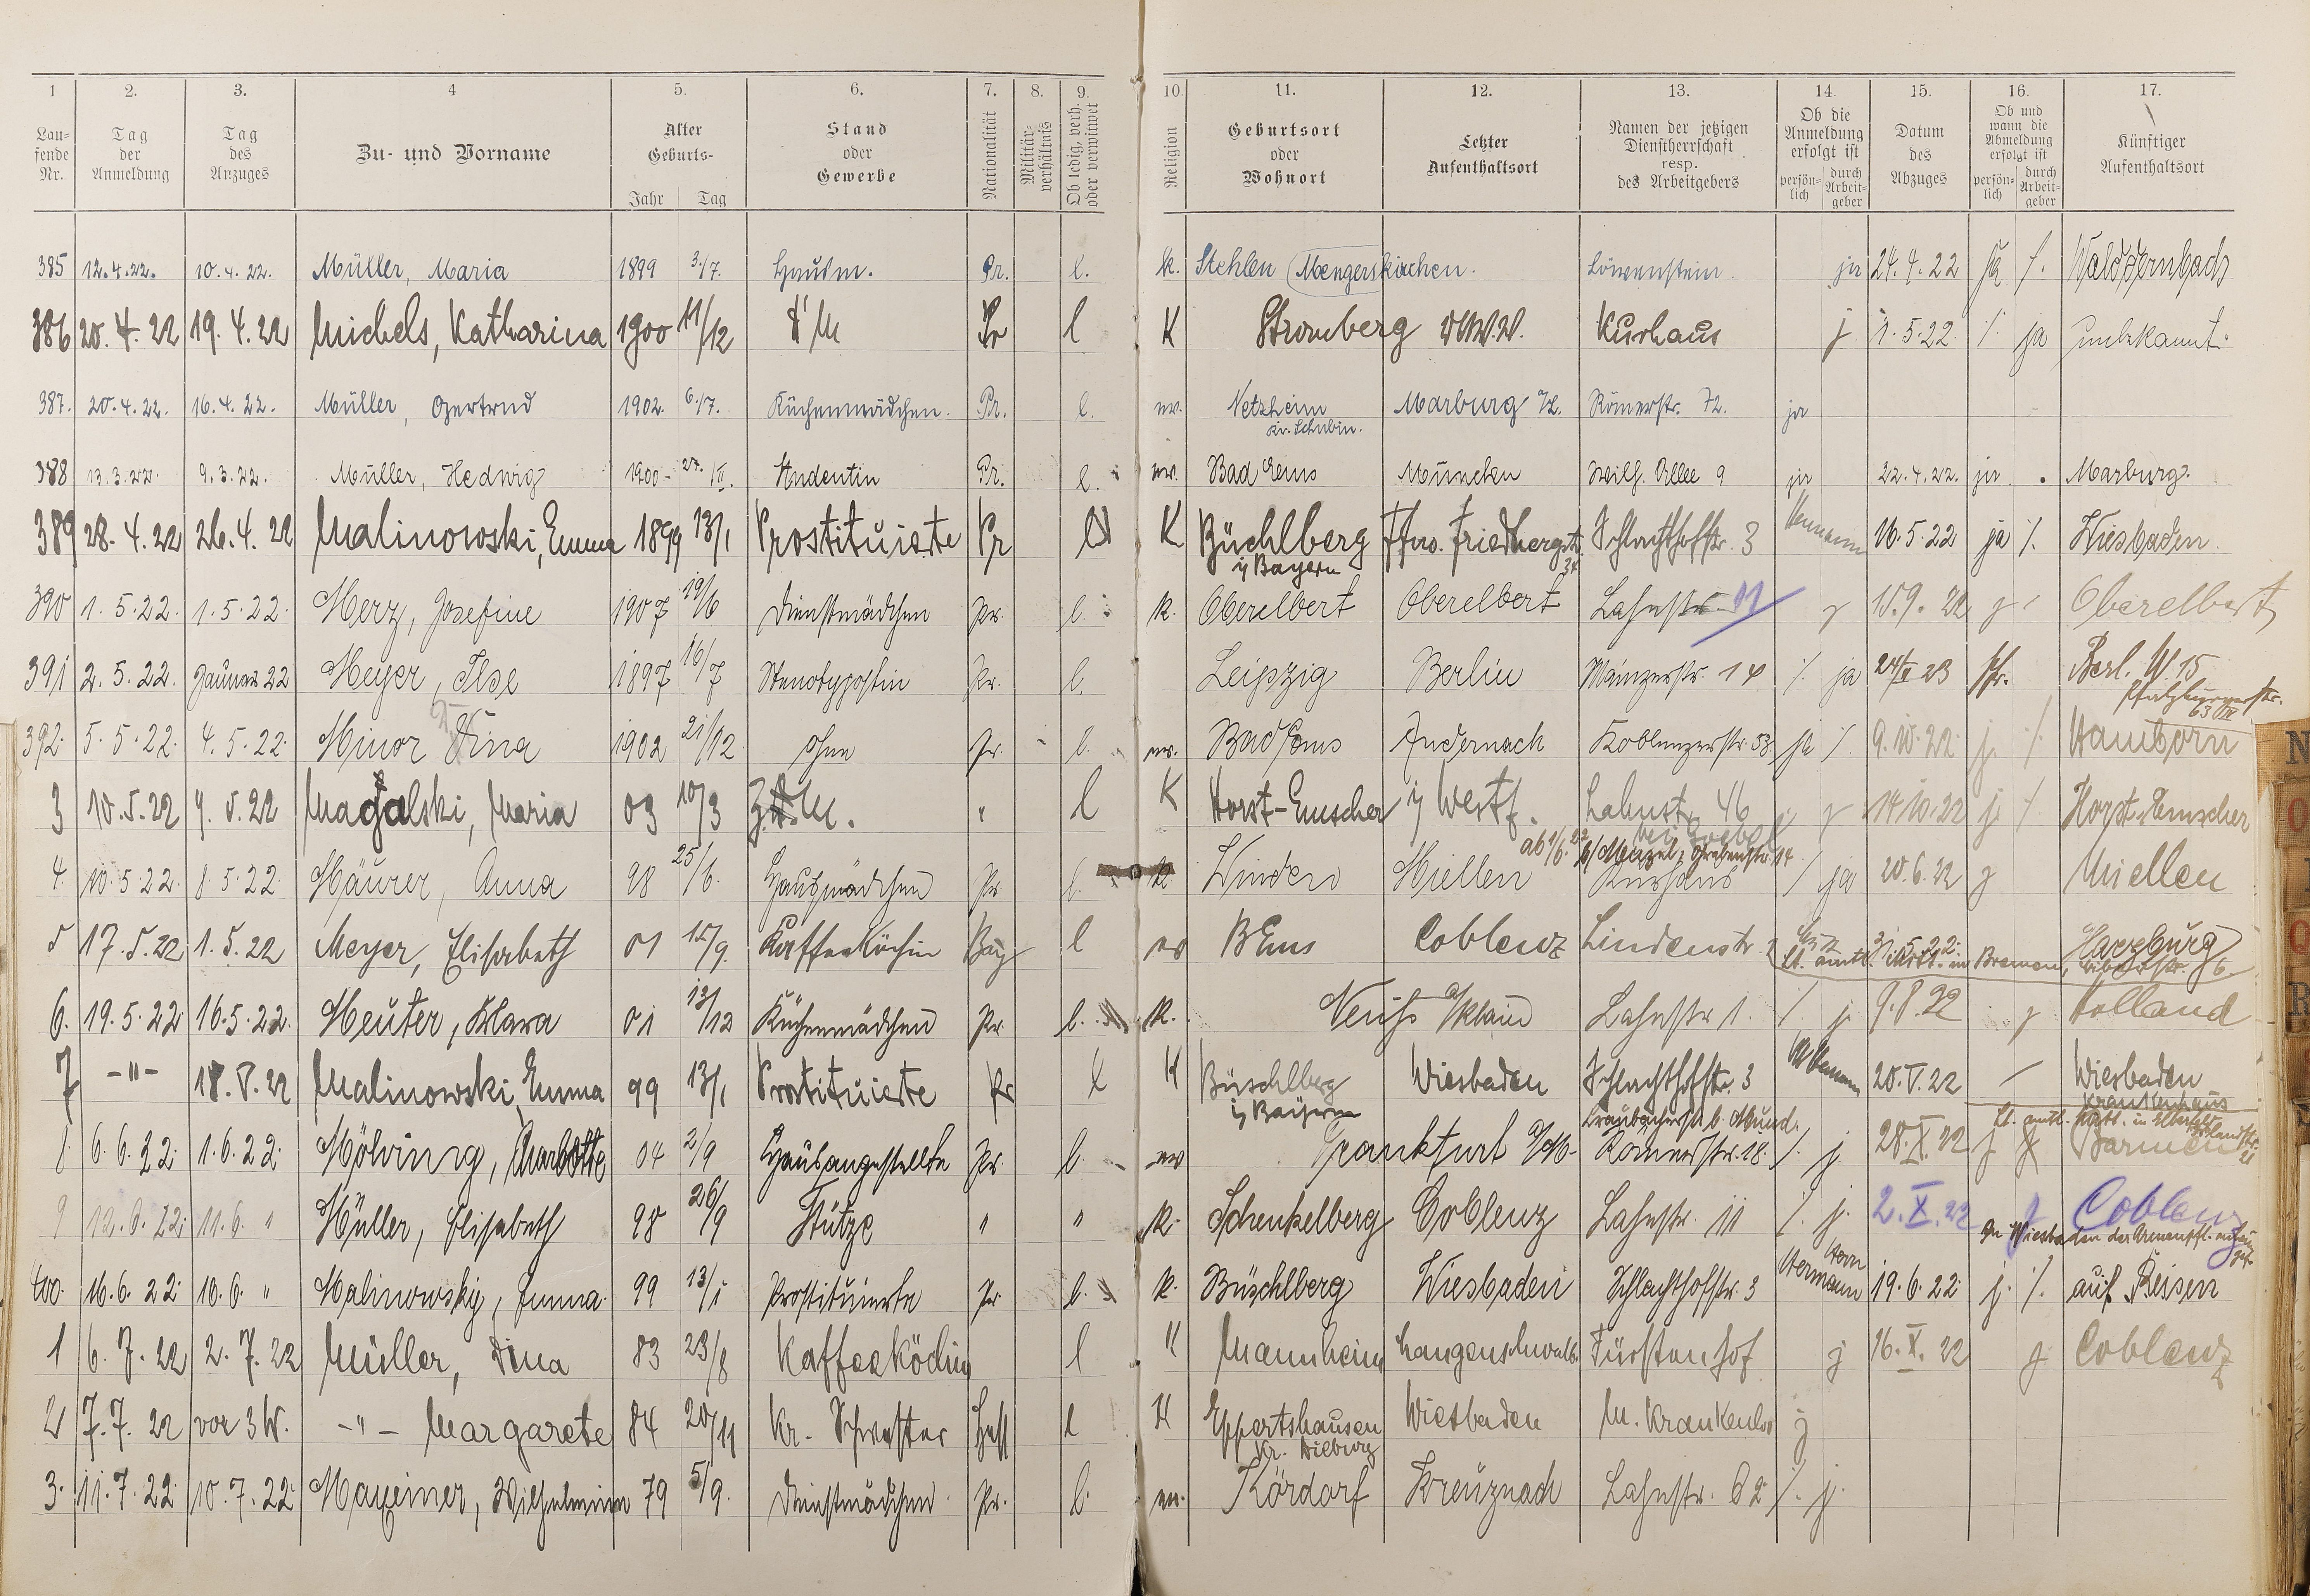 1 2. 3. 4 5. 6. 7. 8. 9. 10. 11. 12. 13. 14. 15. 16. 17.
Lau- fende Nr. Tag der Anmeldung Tag des Anzuges Zu- und Vorname Alter Geburts- Jahr Tag Stand oder Gewerbe Nationalität Militär- verhältnis Ob ledig, verh. oder verwitwet Religion Geburtsort oder Wohnort Letzter Aufenthaltsort Namen der jetzigen Dienstherrschaft resp. des Arbeitgebers Ob die Anmeldung erfolgt ist persön- lich durch Arbeit- geber Datum des Abzuges Ob und wann die Abmeldung erfolgt ist persön- lich durch Arbeit- geber Künftiger Aufenthaltsort
385 12.4.22. 10.4.22. Müller, Maria 1899 3./7. Hausm. Pr. l. k. Stehlen (Mengerskirchen. Löwenstein. ja 24.4.22 ja /. Waldernbach
386 20.4.22 19.4.22 Michels, Katharina 1900 11/12 Pr l K Stromberg Kurhaus j. 1.5.22 /. ja unbekannt.
387. 20.4.22. 16.4.22. Müller, Gertrud 1902. 6./7. Küchenmädchen. Pr. l. ev. Netzheim Marburg a/L. Römerstr. 72. ja
Kr. Schubin.
388 13.3.22. 9.3.22. Müller, Hedwig 1900 - 27./II. Studentin Pr. l. ev. Bad Ems München Wilh. Allee 9 ja 22.4.22. ja . Marburg.
389 28.4.22 26.4.22 Malinowski, Emma 1899 13/1 Prostituierte Pr l K Büchlberg Friedbergstr. Schlachthofstr. 3 Hermann 16.5.22 ja /. Wiesbaden
i/ Bayern 34
390 1.5.22. 1.5.22. Merz, Josefine 1907 19/6 Dienstmädchen Pr. l. k. Oberelbert Oberelbert Lahnstr. 11 j 15.9.22 j / Oberelbert
391 2.5.22. Januar 22 Meyer, Ilse 1897 16/7 Stenotypistin Pr. l. Leipzig Berlin Mainzerstr. 14 /. ja 23 Berl. W. 15
Pfalzburgerstr. 63 III
392. 5.5.22. 4.5.22. Minor Dina 1902 21/12. ohne Pr. - l. ev. Bad Ems Andernach Koblenzerstr. 53. ja /. 9.10.22 j. /. Hamborn
3 10.5.22 9.5.22 Magalski, Maria 03 10/3 Z.M. " l K Horst-Emscher i/ Westf. Lahnstr. 46 j 14.10.22 j. /. Horst-Emscher
ab 1/6.22 b/ Menzel, Grabenstr. 14
4. 10.5.22. 8.5.22. Mäurer, Anna 98 25/6. Hausmädchen Pr. l. k Winden Miellen Kurhaus / ja 20.6.22 j Miellen
5 17.5.22 1.5.22 Meyer, Elisabeth 01 15/9. Kaffeeköchin Bay l ev BEms Coblenz Lindenstr. 2 31.5.22. Harzburg
lt. amtl. Mitt. in Bremen, 6.
6. 19.5.22. 16.5.22. Meuter, Klara 01 13/12 Küchenmädchen Pr. l. k. Neuss a/Rhein Lahnstr 1. /. j. 9.8.22 j Holland
7 -"- 18.V.22 Malinowski, Emma 99 13/1 Prostituierte Pr l K Büschlberg Wiesbaden Schlachthofstr. 3 Hermann 20.V.22 / Wiesbaden
i/ Bayern Krankenhaus
Braubacherstr. b. Mund. lt. amtl. Mitt. in Elberfeld
8. 6.6.22. 1.6.22. Mölving, Charlotte 04 2/9 Hausangestellte Pr. l. ev Frankfurt a/M- Römerstr. 18. /. j. 28.X.22 j Barmen
9 12.6.22. 11.6. " Müller, Elisabeth 98 26/9 Stütze " " k. Schenkelberg Coblenz Lahnstr. 11 /. j. 2.X.22 j Coblenz
In Wiesbaden der
400. 16.6.22. 10.6. " Malinowsky, Emma. 99 13/1 Prostituierte Pr l. k. Büschlberg Wiesbaden Schlachthofstr. 3 Herrn Hermann 19.6.22. j. /. auf Reisen
1 6.7.22 2.7.22 Müller, Dina 83 23/8 Kaffeeköchin l K Mannheim Langenschwalb. Fürstenhof j 16.X.22 j Coblenz
2 7.7.22 vor 3 W. -"- Margarete 84 20/11 Kr. Schwester Hess l K Eppertshausen Wiesbaden M. Krankenhs j
Kr. Dieburg
3. 11.7.22. 10.7.22. Mayeiner, Wilhelmine 79 5/9. Dienstmädchen Pr. l. ev. Kördorf Kreuznach Lahnstr. 62 /. j.